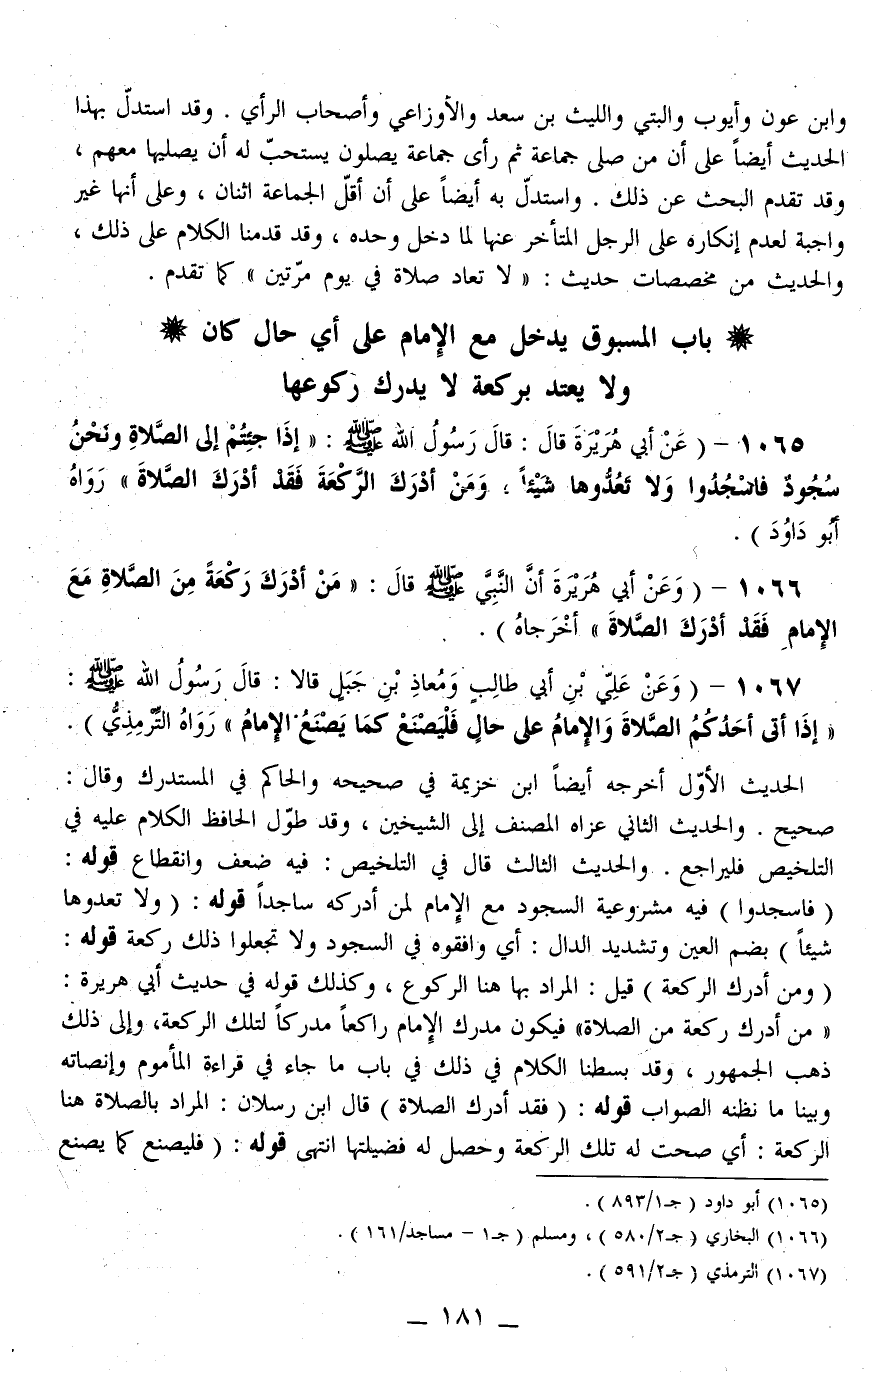 وابن عون وأيوب والبتي والليث بن سعد والأوزاعي وأصحاب الرأي . وقد استدلّ بهذا
الحديث أيضاً على أن من صلى جماعة ثم رأى جماعة يصلون يستحبّ له أن يصليها معهم ،
وقد تقدم البحث عن ذلك . واستدلّ به أيضاً على أن أقلّ الجماعة اثنان ، وعلى أنها غير
واجبة لعدم إنكاره على الرجل المتأخر عنها لما دخل وحده ، وقد قدمنا الكلام على ذلك ،
والحديث من مخصصات حديث : « لا تعاد صلاة في يوم مرّتين » كما تقدم .
باب المسبوق يدخل مع الإمام على أي حال كان
ولا يعتد بركعة لا يدرك ركوعها
١٠٦٥ – ( عَنْ أبي هُرَيْرَةَ قالَ : قالَ رَسُولُ الله ﷺ : « إذَا جِئتُمْ إلى الصَّلاةِ ونَحْنُ
سُجُودٌ فاسْجُدُوا وَلا تَعُدُّوها شَيْئاً ، وَمَنْ أدْرَكَ الرَّكْعَةَ فَقَدْ أدْرَكَ الصَّلاةَ » رَوَاهُ
أبُو دَاوُدَ ) .
١٠٦٦ – ( وَعَنْ أبي هُرَيْرَةَ أنَّ النَّبِيَّ ﷺ قالَ : « مَنْ أدْرَكَ رَكْعَةً مِنَ الصَّلاةِ مَعَ
الإمامِ فَقَدْ أدْرَكَ الصَّلاةَ » أخْرَجاهُ ) .
١٠٦٧ – ( وَعَنْ عَلِيّ بْنِ أبي طالِبٍ وَمُعاذِ بْنِ جَبَلٍ قالا : قالَ رَسُولُ الله ﷺ :
« إذَا أتى أحَدُكُمُ الصَّلاةَ وَالإمامُ على حالٍ فَلْيَصْنَعْ كمَا يَصْنَعُ الإمامُ » رَوَاهُ التِّرْمِذِيُّ ) .
الحديث الأوّل أخرجه أيضاً ابن خزيمة في صحيحه والحاكم في المستدرك وقال :
صحيح . والحديث الثاني عزاه المصنف إلى الشيخين ، وقد طوّل الحافظ الكلام عليه في
التلخيص فليراجع . والحديث الثالث قال في التلخيص : فيه ضعف وانقطاع قوله :
( فاسجدوا ) فيه مشروعية السجود مع الإمام لمن أدركه ساجداً قوله : ( ولا تعدوها
شيئاً ) بضم العين وتشديد الدال : أي وافقوه في السجود ولا تجعلوا ذلك ركعة قوله :
( ومن أدرك الركعة ) قيل : المراد بها هنا الركوع ، وكذلك قوله في حديث أبي هريرة :
« من أدرك ركعة من الصلاة» فيكون مدرك الإمام راكعاً مدركاً لتلك الركعة، وإلى ذلك
ذهب الجمهور ، وقد بسطنا الكلام في ذلك في باب ما جاء في قراءة المأموم وإنصاته
وبينا ما نظنه الصواب قوله : ( فقد أدرك الصلاة ) قال ابن رسلان : المراد بالصلاة هنا
الركعة : أي صحت له تلك الركعة وحصل له فضيلتها انتهى قوله : ( فليصنع كما يصنع
(١٠٦٥) أبو داود ( جـ٨٩٣/١ ) .
(١٠٦٦) البخاري ( جـ٥٨٠/٢ ) ، ومسلم ( جـ١ – مساجد/١٦١ ) .
(١٠٦٧) الترمذي ( جـ٥٩١/٢ ) .
ــ ١٨١ ــ